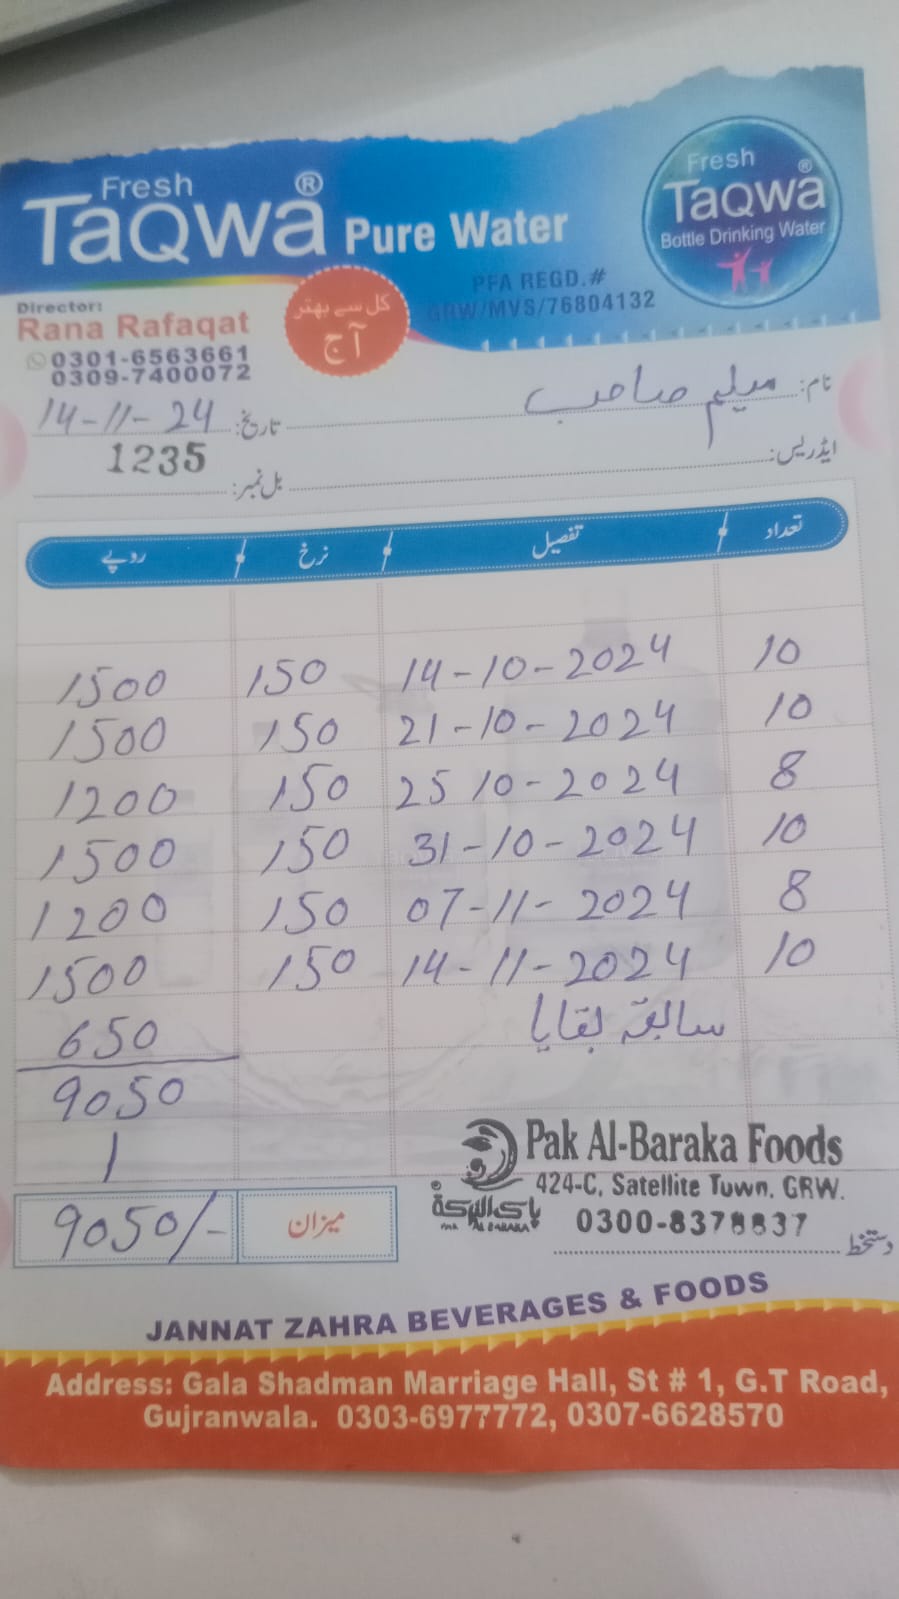 Fresh
TaQwa ® Pure Water
Fresh
TaQwa ®
Bottle Drinking Water
PFA REGD.#
GRW/MVS/76804132
Director:
Rana Rafaqat
0301-6563661
0309-7400072
کل سے بہتر
آج
نام: سلیم صاحب
تاریخ: 14-11-24
ایڈریس:
بل نمبر: 1235
تعداد تفصیل نرخ روپے
10 14-10-2024 150 1500
10 21-10-2024 150 1500
8 25 10-2024 150 1200
10 31-10-2024 150 1500
8 07-11-2024 150 1200
10 14-11-2024 150 1500
سابقہ بقایا 650
9050
میزان 9050/-
Pak Al-Baraka Foods
424-C, Satellite Tuwn, GRW.
پاک البرکة
0300-8378837
دستخط
JANNAT ZAHRA BEVERAGES & FOODS
Address: Gala Shadman Marriage Hall, St # 1, G.T Road,
Gujranwala. 0303-6977772, 0307-6628570